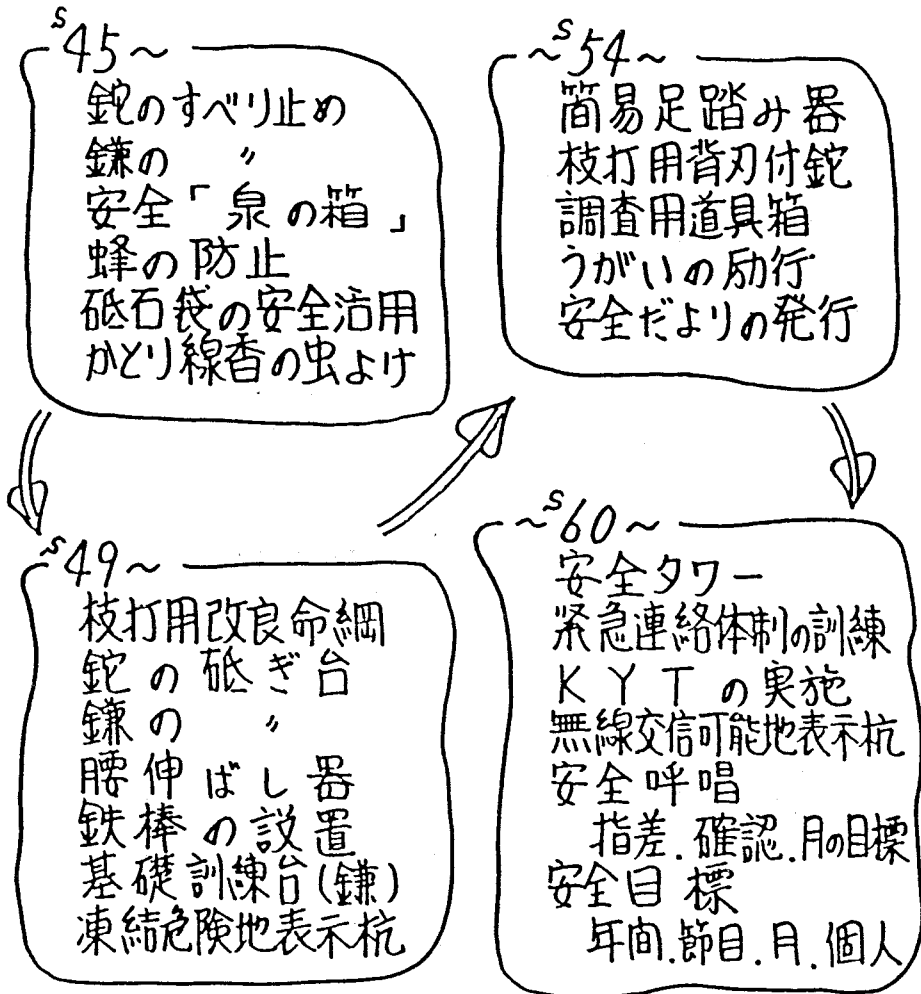 S45～
鉈のすべり止め
鎌の 〃
安全「泉の箱」
蜂の防止
砥石袋の安全活用
かとり線香の虫よけ
S49～
枝打用改良命綱
鉈の砥ぎ台
鎌の 〃
腰伸ばし器
鉄棒の設置
基礎訓練台(鎌)
凍結危険地表示杭
～S54～
簡易足踏み器
枝打用背刃付鉈
調査用道具箱
うがいの励行
安全だよりの発行
～S60～
安全タワー
緊急連絡体制の訓練
KYTの実施
無線交信可能地表示杭
安全呼唱
指差.確認.月の目標
安全目標
年間.節目.月.個人